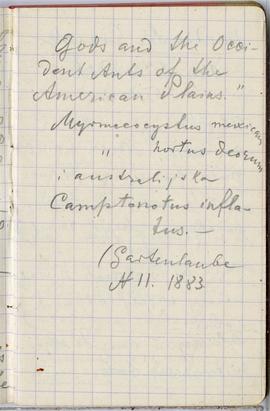 Gods and the Occi-
dent Ants of the
American Plains."
Myrmecocystus mexican
" hortus deorum
i australijska
Camptonotus infla-
tus. —
(Gartenlaube
H 11. 1883